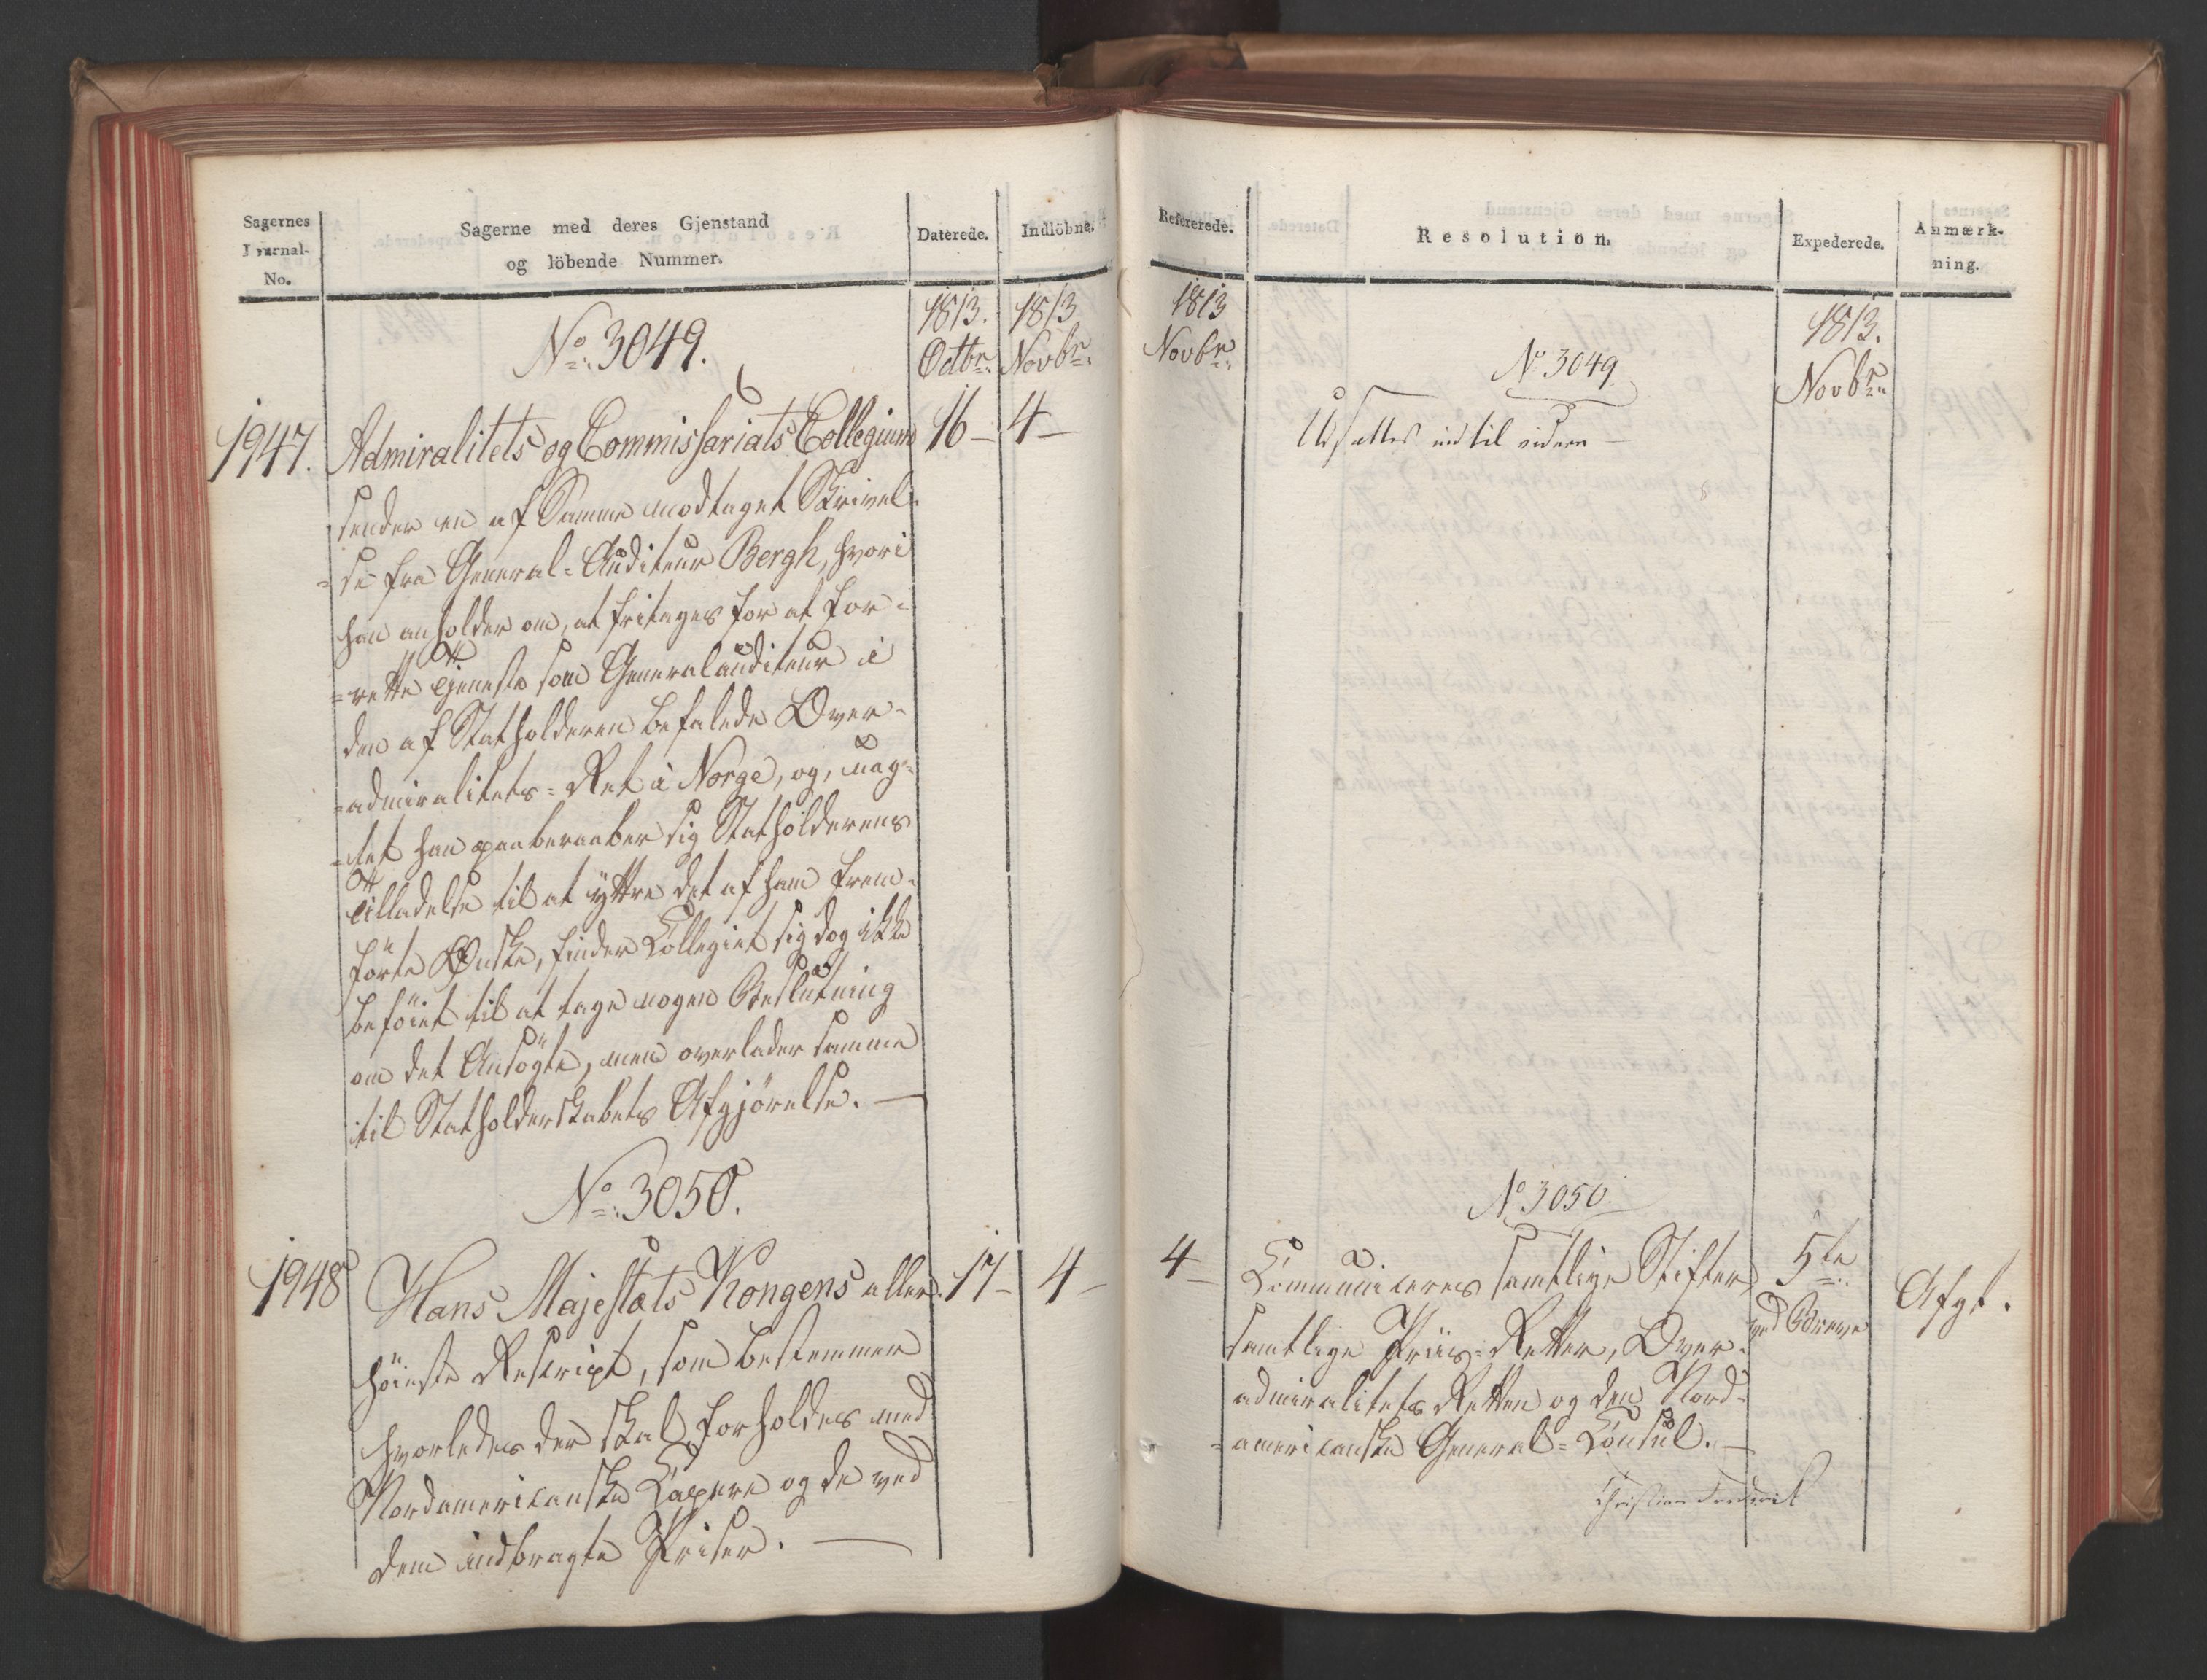 Sagernes
Journal-
No.
Sagerne med deres Gjenstand
og löbende Nummer.
Daterede.
Indlöbne.
1813.
Octbr.
1813
Novbr.
No. 3049.
1947. Admiralitets og Commissariats Collegium 16 - 4 -
sender en af Samme modtaget Skrivel-
=se fra General=Auditeur Bergh, hvori
han anholder om, at fritages for at for-
=rette Tjeneste som Generalauditeur i
den af Statholderen befalede Over-
=admiralitets=Ret i Norge, og, uag-
=tet han paaberaaber sig Statholderens
Tilladelse til at yttre det af ham frem-
förte Ønske, finder Collegiet sig dog ikke
beföiet til at tage nogen Beslutning
om det Ansögte, men overlader samme
til Statholderskabets Afgjörelse. —
No. 3050.
1948 Hans Majestæts Kongens aller- 17 - 4 -
höieste Rescript, som bestemmer
hvorledes der skal forholdes med
Nordamericanske Capere og de ved
dem indbragte Priser. —
Refererede.
Resolution.
Expederede.
Anmærk-
ning.
1813
Novbr.
1813.
Novbr.
No. 3049.
Udsættes indtil videre —
No. 3050.
4 - Communiceres samtlige Stifter, 5te Afgt.
samtlige Priis=Retter, Over- ved Breve
admiralitets Retten og den Nord-
=americanske General=Consul. —
Christian Frederik